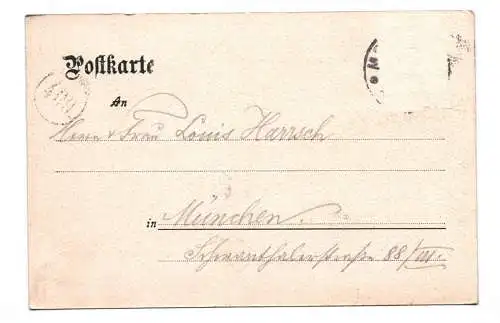 Postkarte
An
Herrn & Frau Louis Harrsch
in München.
Schwanthalerstraße 88/III.